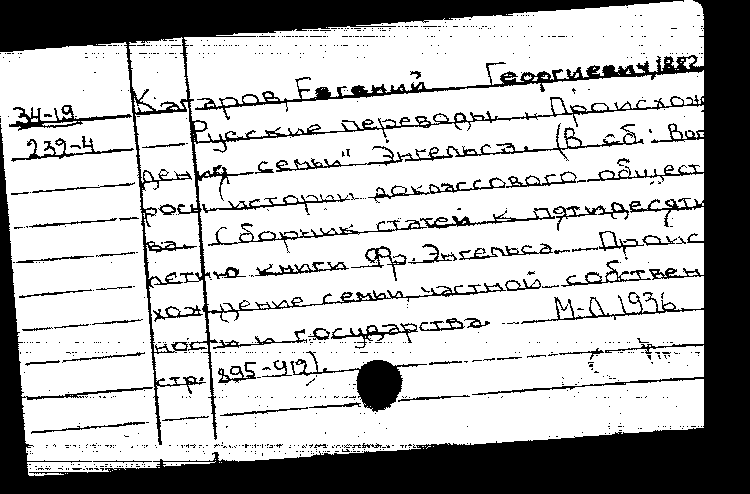 34-19
239-4
Кагаров, Евгений Георгиевич, 1882
Русские переводы „Происхож
дения семьи" Энгельса. (В сб.: Воп
росы истории доклассового общест
ва. Сборник статей к пятидесяти
летию книги Фр. Энгельса Проис
хождение семьи, частной собствен
ности и государства. М-Л, 1936.
стр. 895-912).